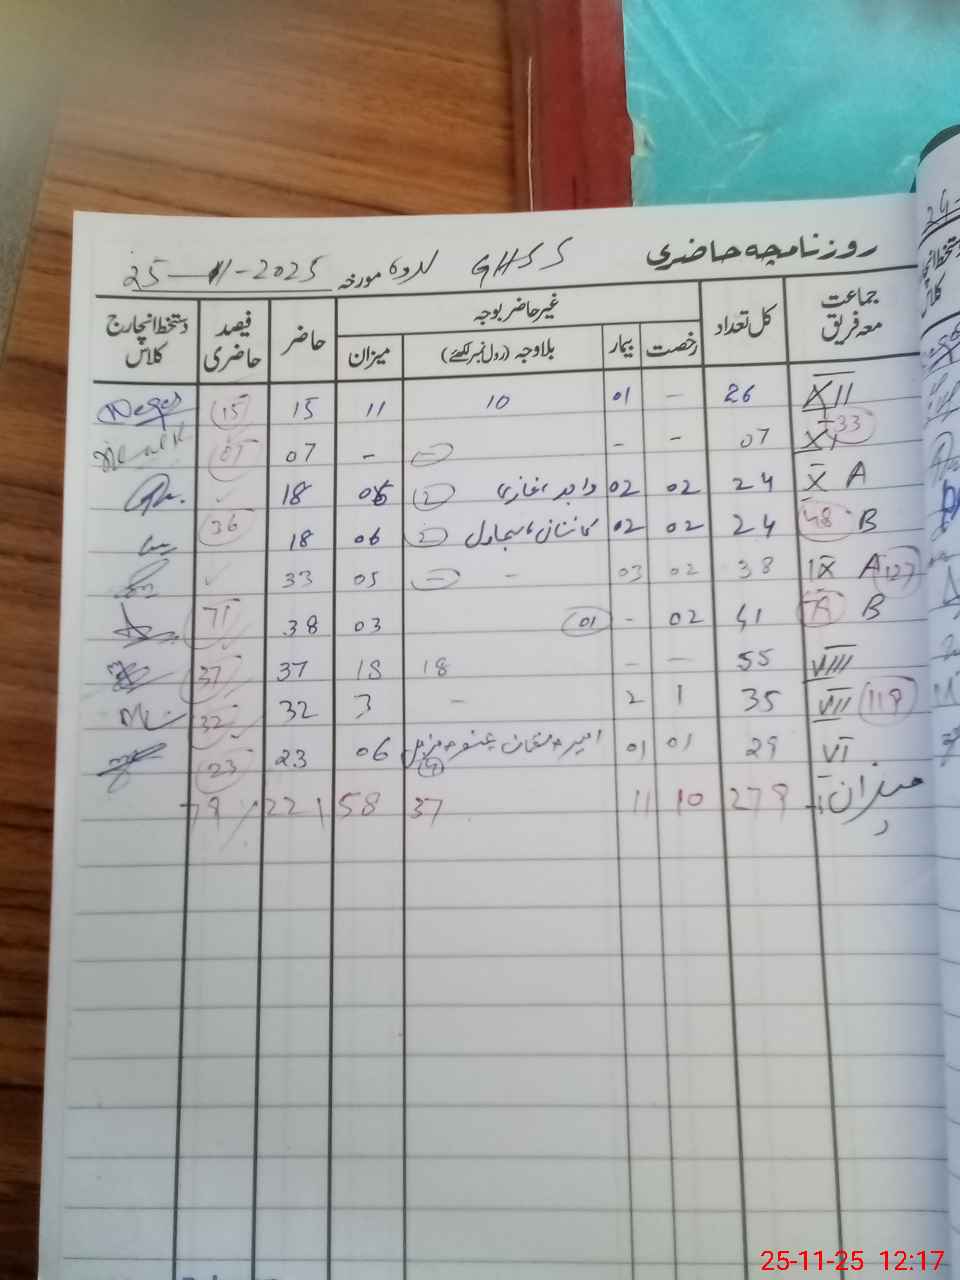 روزنامچہ حاضری GHSS لدوہ مورخہ 25-11-2025
جماعت معہ فریق کل تعداد غیر حاضر بوجہ حاضر فیصد حاضری دستخط انچارج کلاس
رخصت بیمار بلاوجہ (رول نمبر لکھئے) میزان
XII 26 - 01 10 11 15 15
XI 33 07 - - - - 07 07
X A 24 02 02 (2) 06 18 ✓
48 B 24 02 02 (2) 06 18 36
IX A 127 38 02 03 - - 05 33 ✓
79 B 41 02 - 01 03 38 71
VIII 55 - - 18 18 37 37
VII 119 35 1 2 - 3 32 32
VI 29 01 01 (4) 06 23 23
میزان:- 279 10 11 37 58 221 79%
25-11-25 12:17